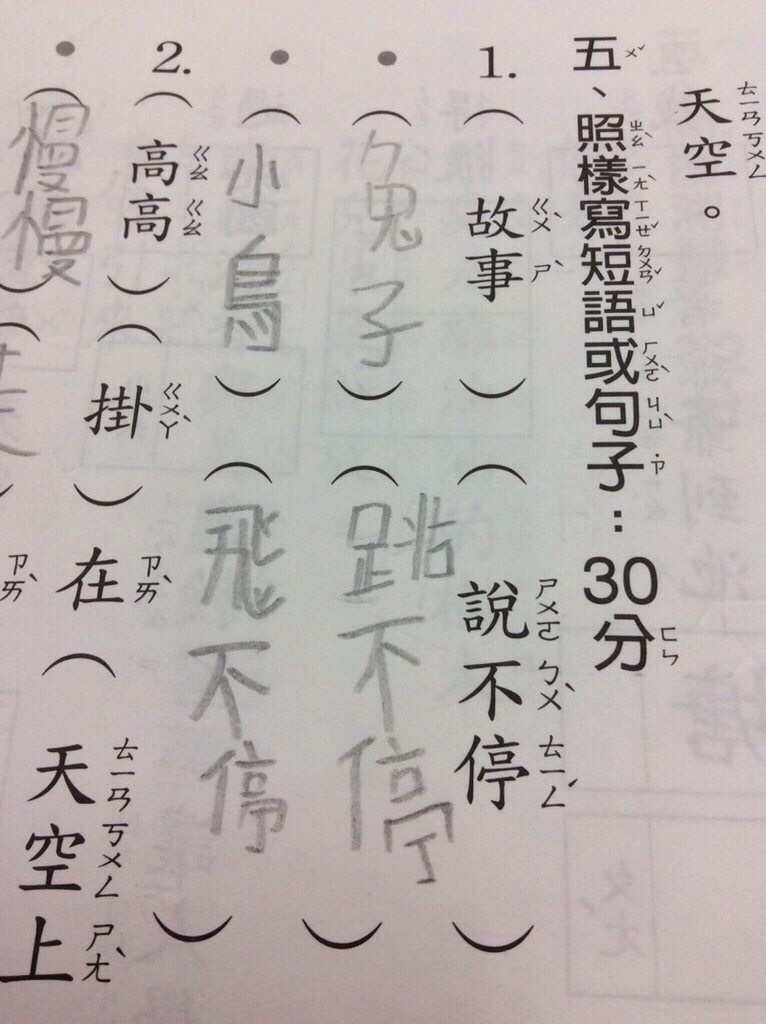 天空。
五、照樣寫短語或句子：30分
1.（故事）（說不停）
•（兔子）（跳不停）
•（小鳥）（飛不停）
2.（高高）（掛）在（天空上
•（慢慢）（